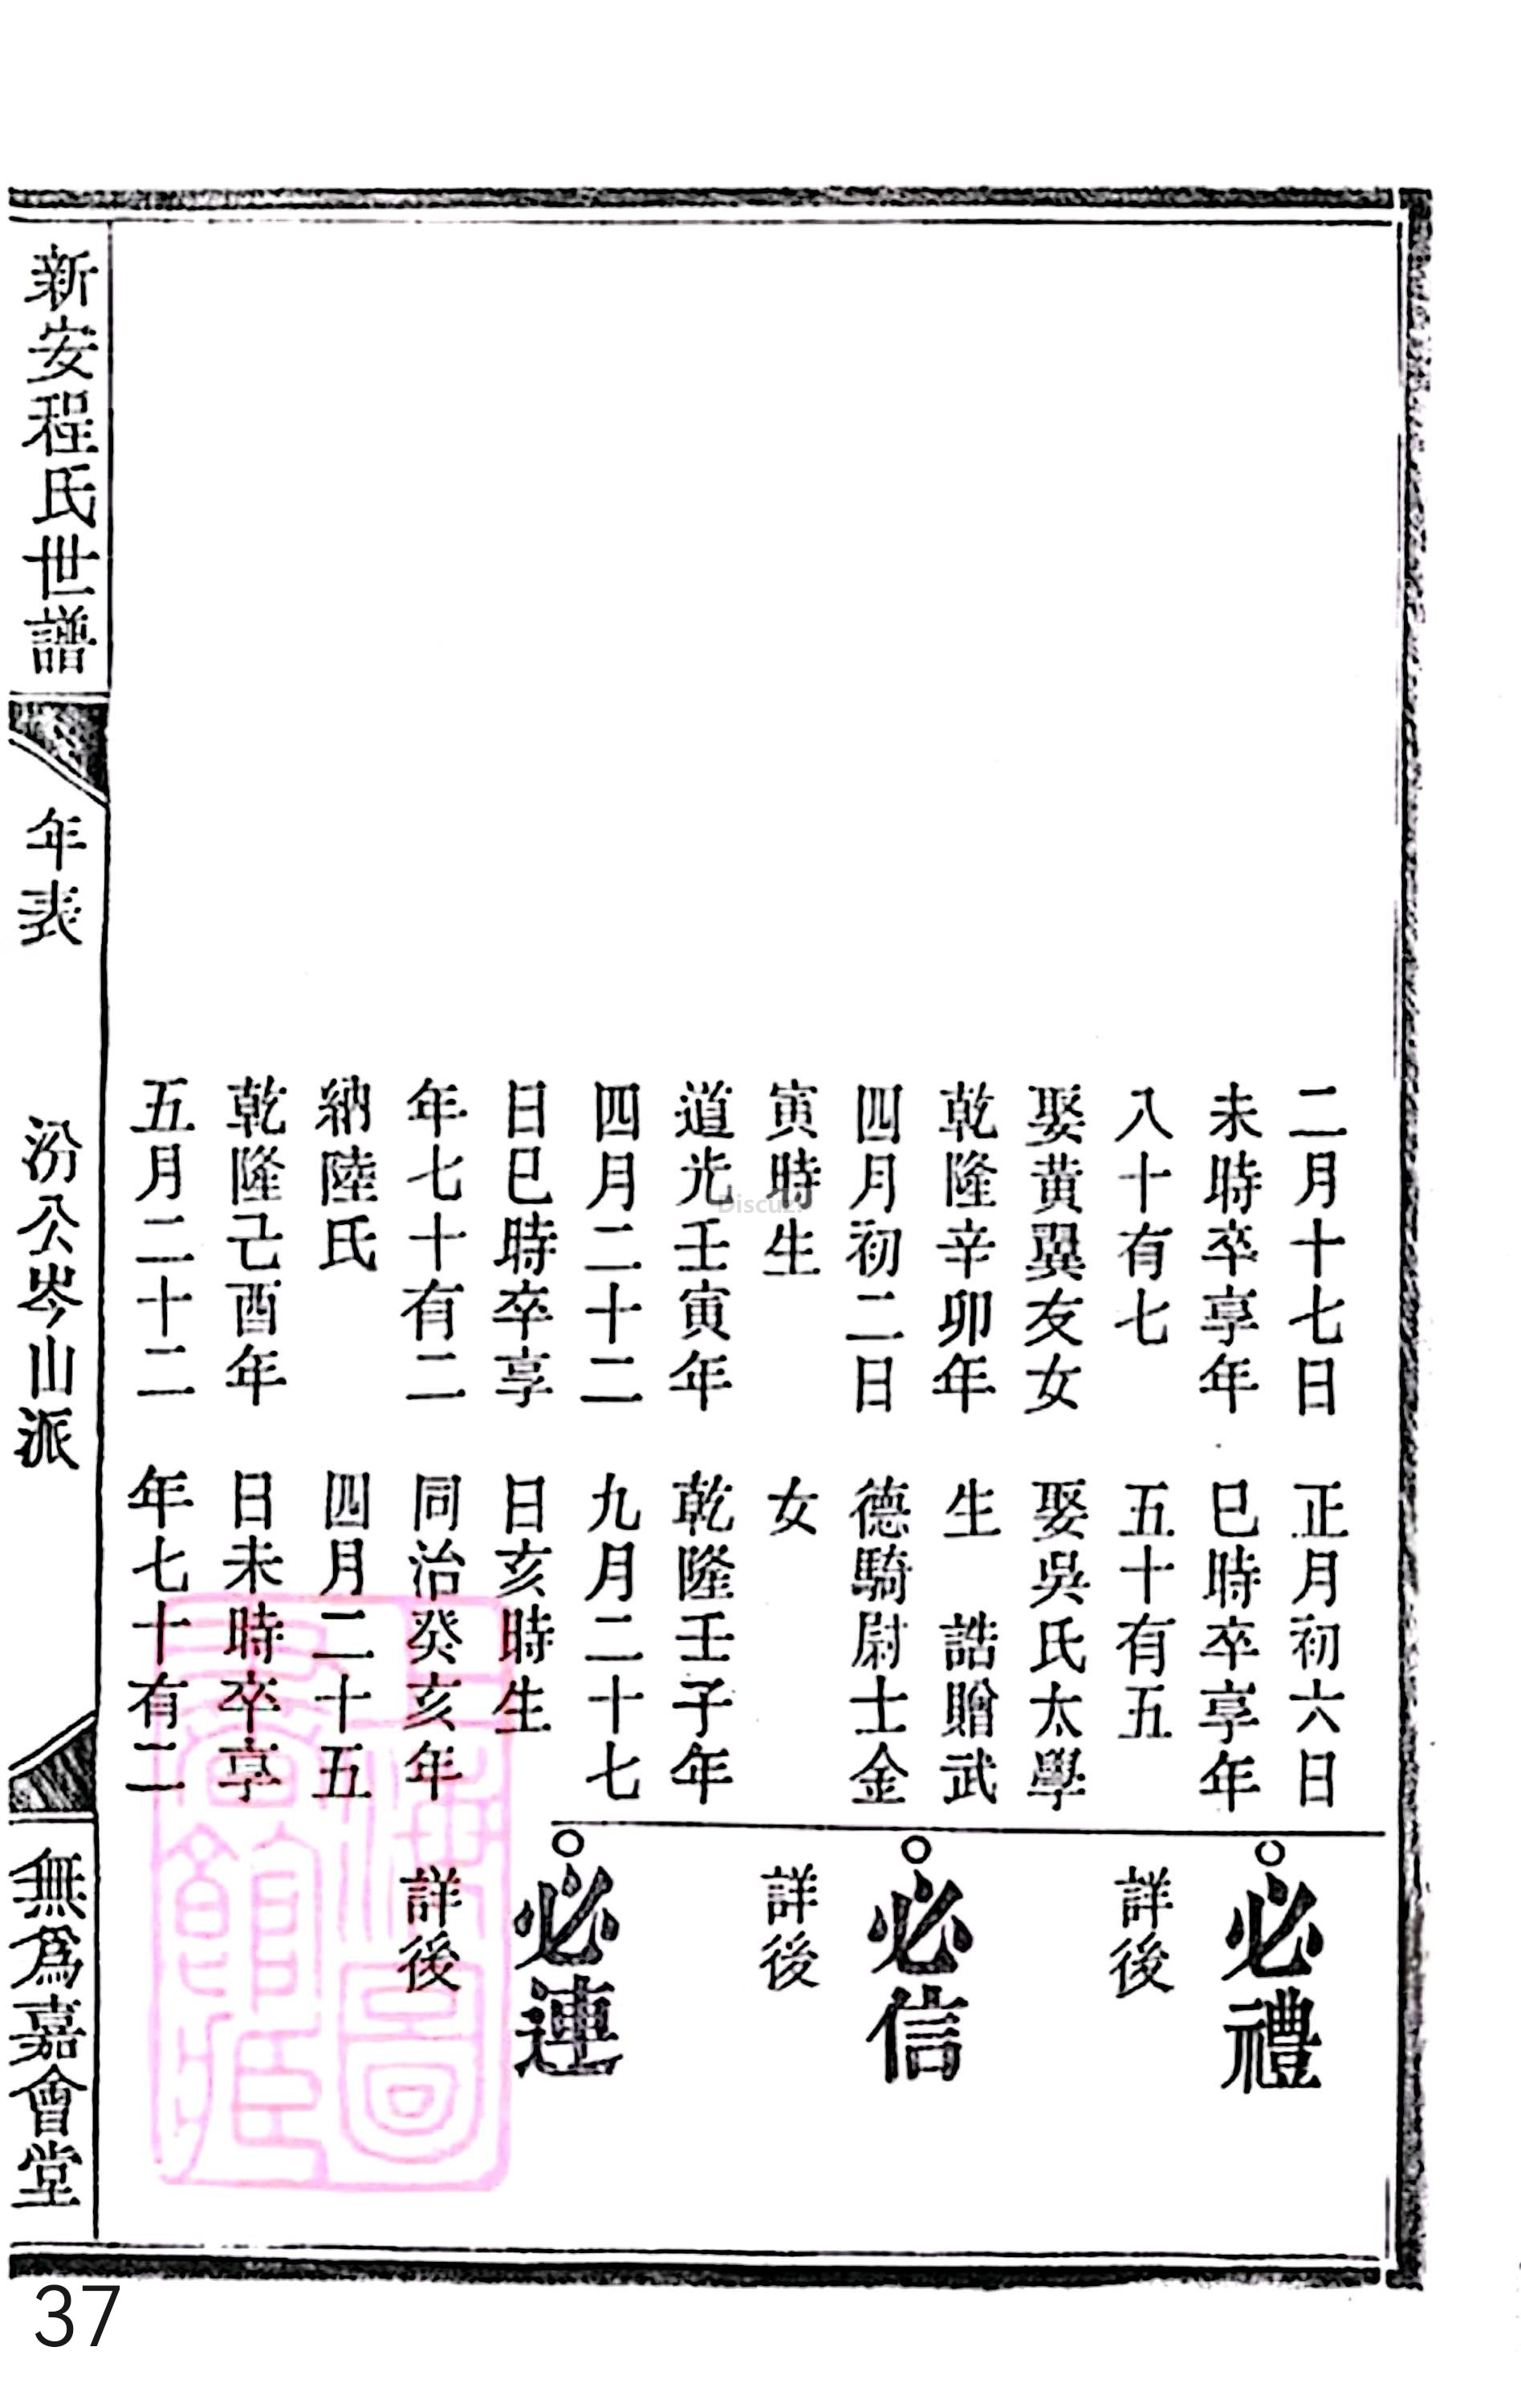 二月十七日
未時卒享年
八十有七
娶黃翼友女
乾隆辛卯年
四月初二日
寅時生
道光壬寅年
四月二十二
日巳時卒享
年七十有二
納陸氏
乾隆己酉年
五月二十二
正月初六日
巳時卒享年
五十有五
娶吳氏太學
生 誥贈武
德騎尉士金
女
乾隆壬子年
九月二十七
日亥時生
同治癸亥年
四月二十五
日未時卒享
年七十有二
必禮
詳後
必信
詳後
必連
詳後
新安程氏世譜
年表
汾公岑山派
無為嘉會堂
上海圖書館藏
Discuz!
37